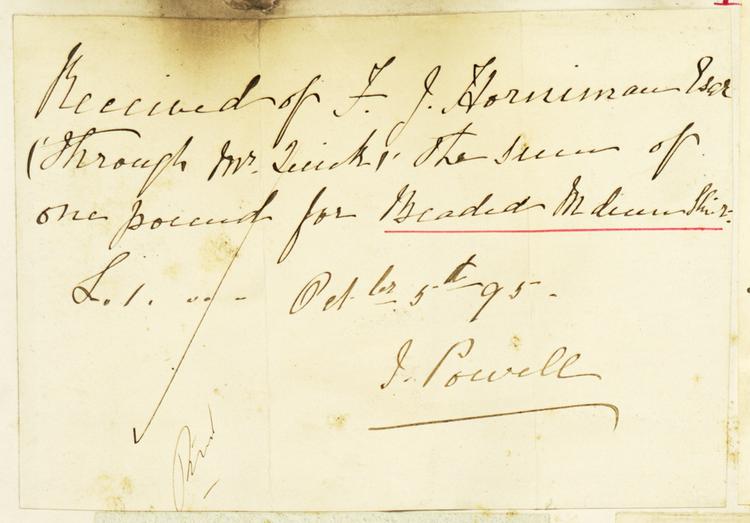 Received of F. J. Horniman Esqr
(through Mr. Quick) the sum of
one pound for Beaded Indian Skirt
£. 1. .. - Octbr 5th 95 -
J. Powell